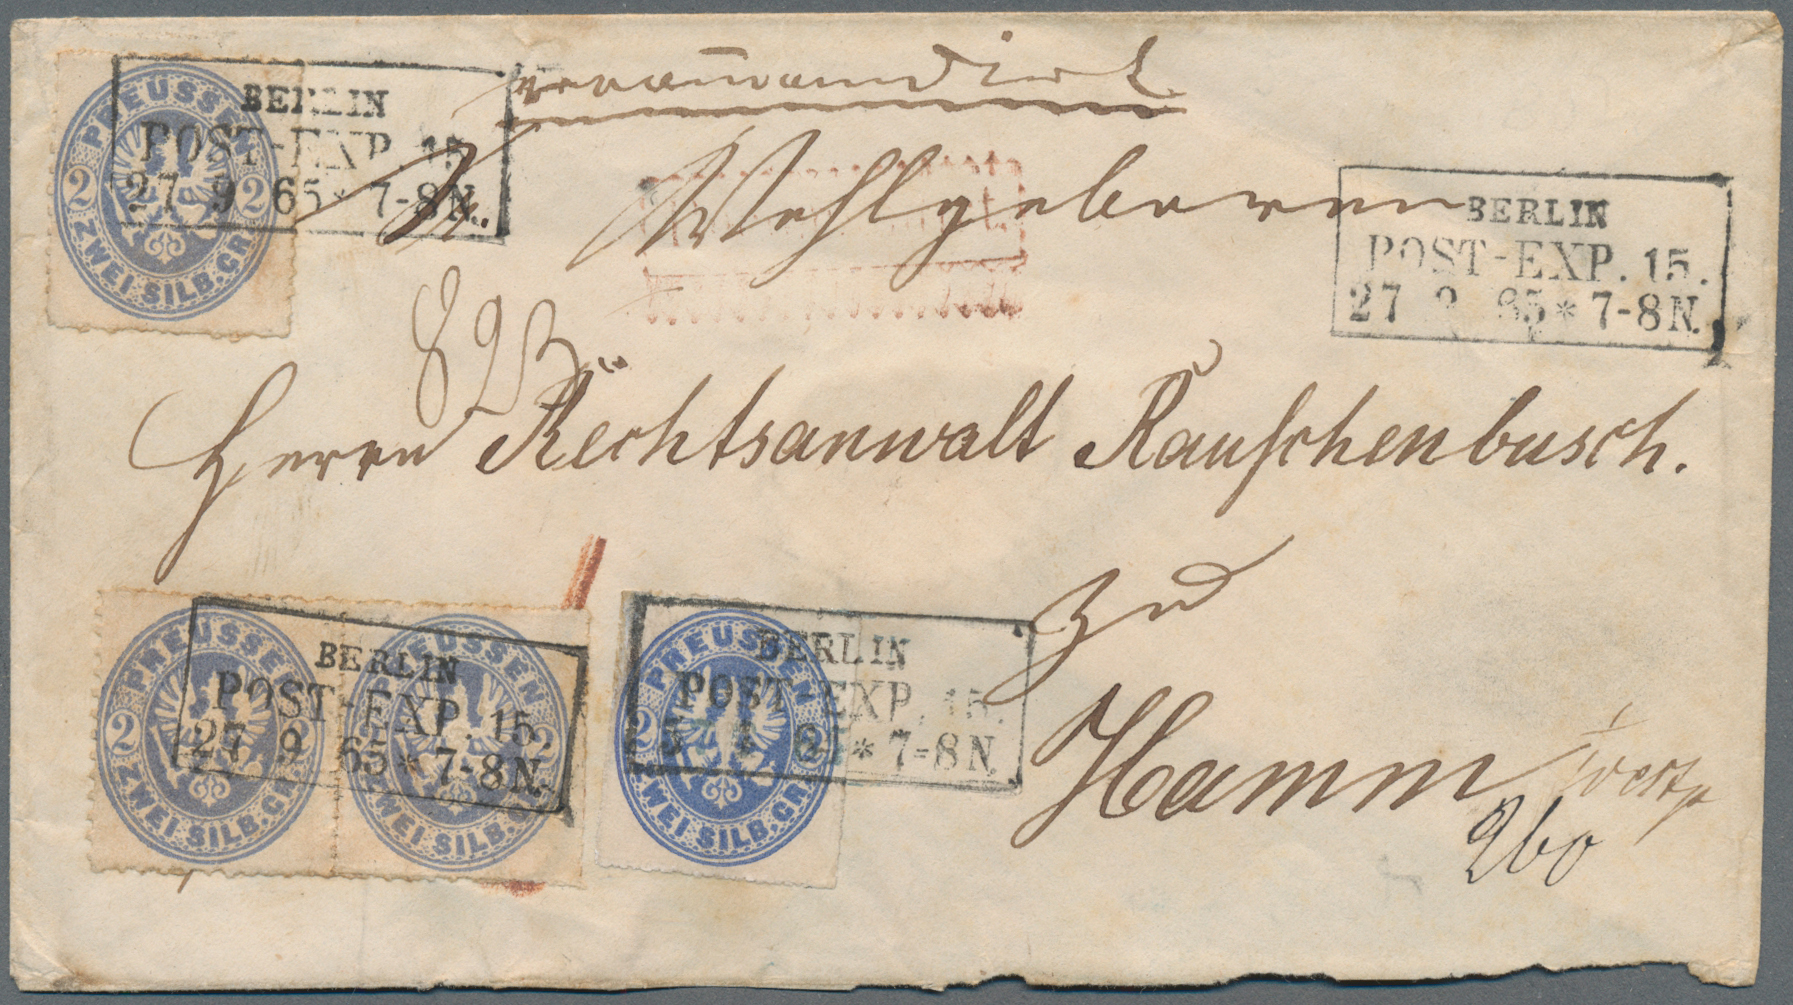 PREUSSEN
2 2
ZWEI SILB.GR.
BERLIN
POST-EXP. 15.
27 9 65 * 7-8N.
recommandirt
Wohlgeboren
BERLIN
POST-EXP. 15.
27 9 65 * 7-8N.
823
Herrn Rechtsanwalt Rauschenbusch.
zu
Hamm
260
PREUSSEN
2
ZWEI SILB.GR.
PREUSSEN
2
ZWEI SILB.GR.
BERLIN
POST-EXP. 15.
27 9 65 * 7-8N.
PREUSSEN
2
ZWEI SILB.GR.
BERLIN
POST-EXP. 15.
* 7-8N.